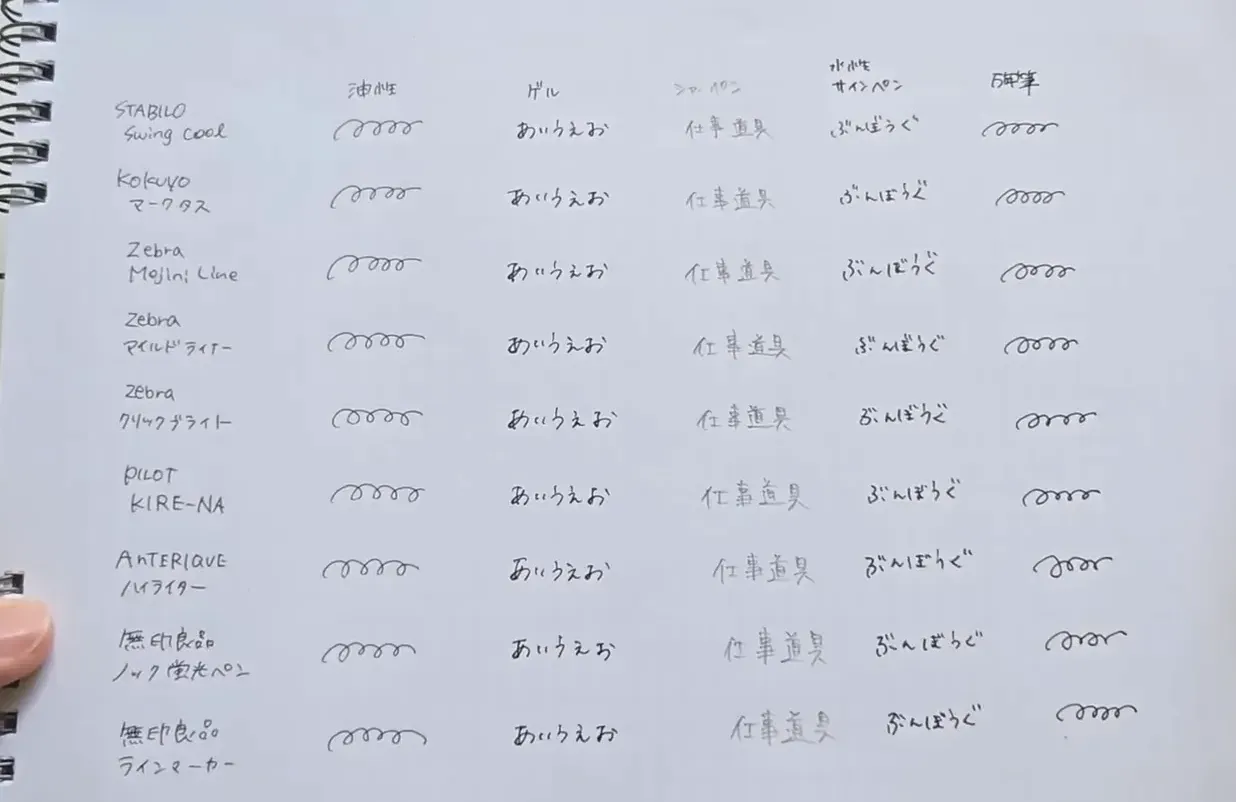 油性 ゲル シャーペン 水性
サインペン 万年筆
STABILO
Swing cool あいうえお 仕事道具 ぶんぼうぐ
KOKUYO
マークタス あいうえお 仕事道具 ぶんぼうぐ
Zebra
Mojini Line あいうえお 仕事道具 ぶんぼうぐ
Zebra
マイルドライナー あいうえお 仕事道具 ぶんぼうぐ
Zebra
クリックブライト あいうえお 仕事道具 ぶんぼうぐ
PILOT
KIRE-NA あいうえお 仕事道具 ぶんぼうぐ
AnTERIQUE
ハイライター あいうえお 仕事道具 ぶんぼうぐ
無印良品
ノック蛍光ペン あいうえお 仕事道具 ぶんぼうぐ
無印良品
ラインマーカー あいうえお 仕事道具 ぶんぼうぐ